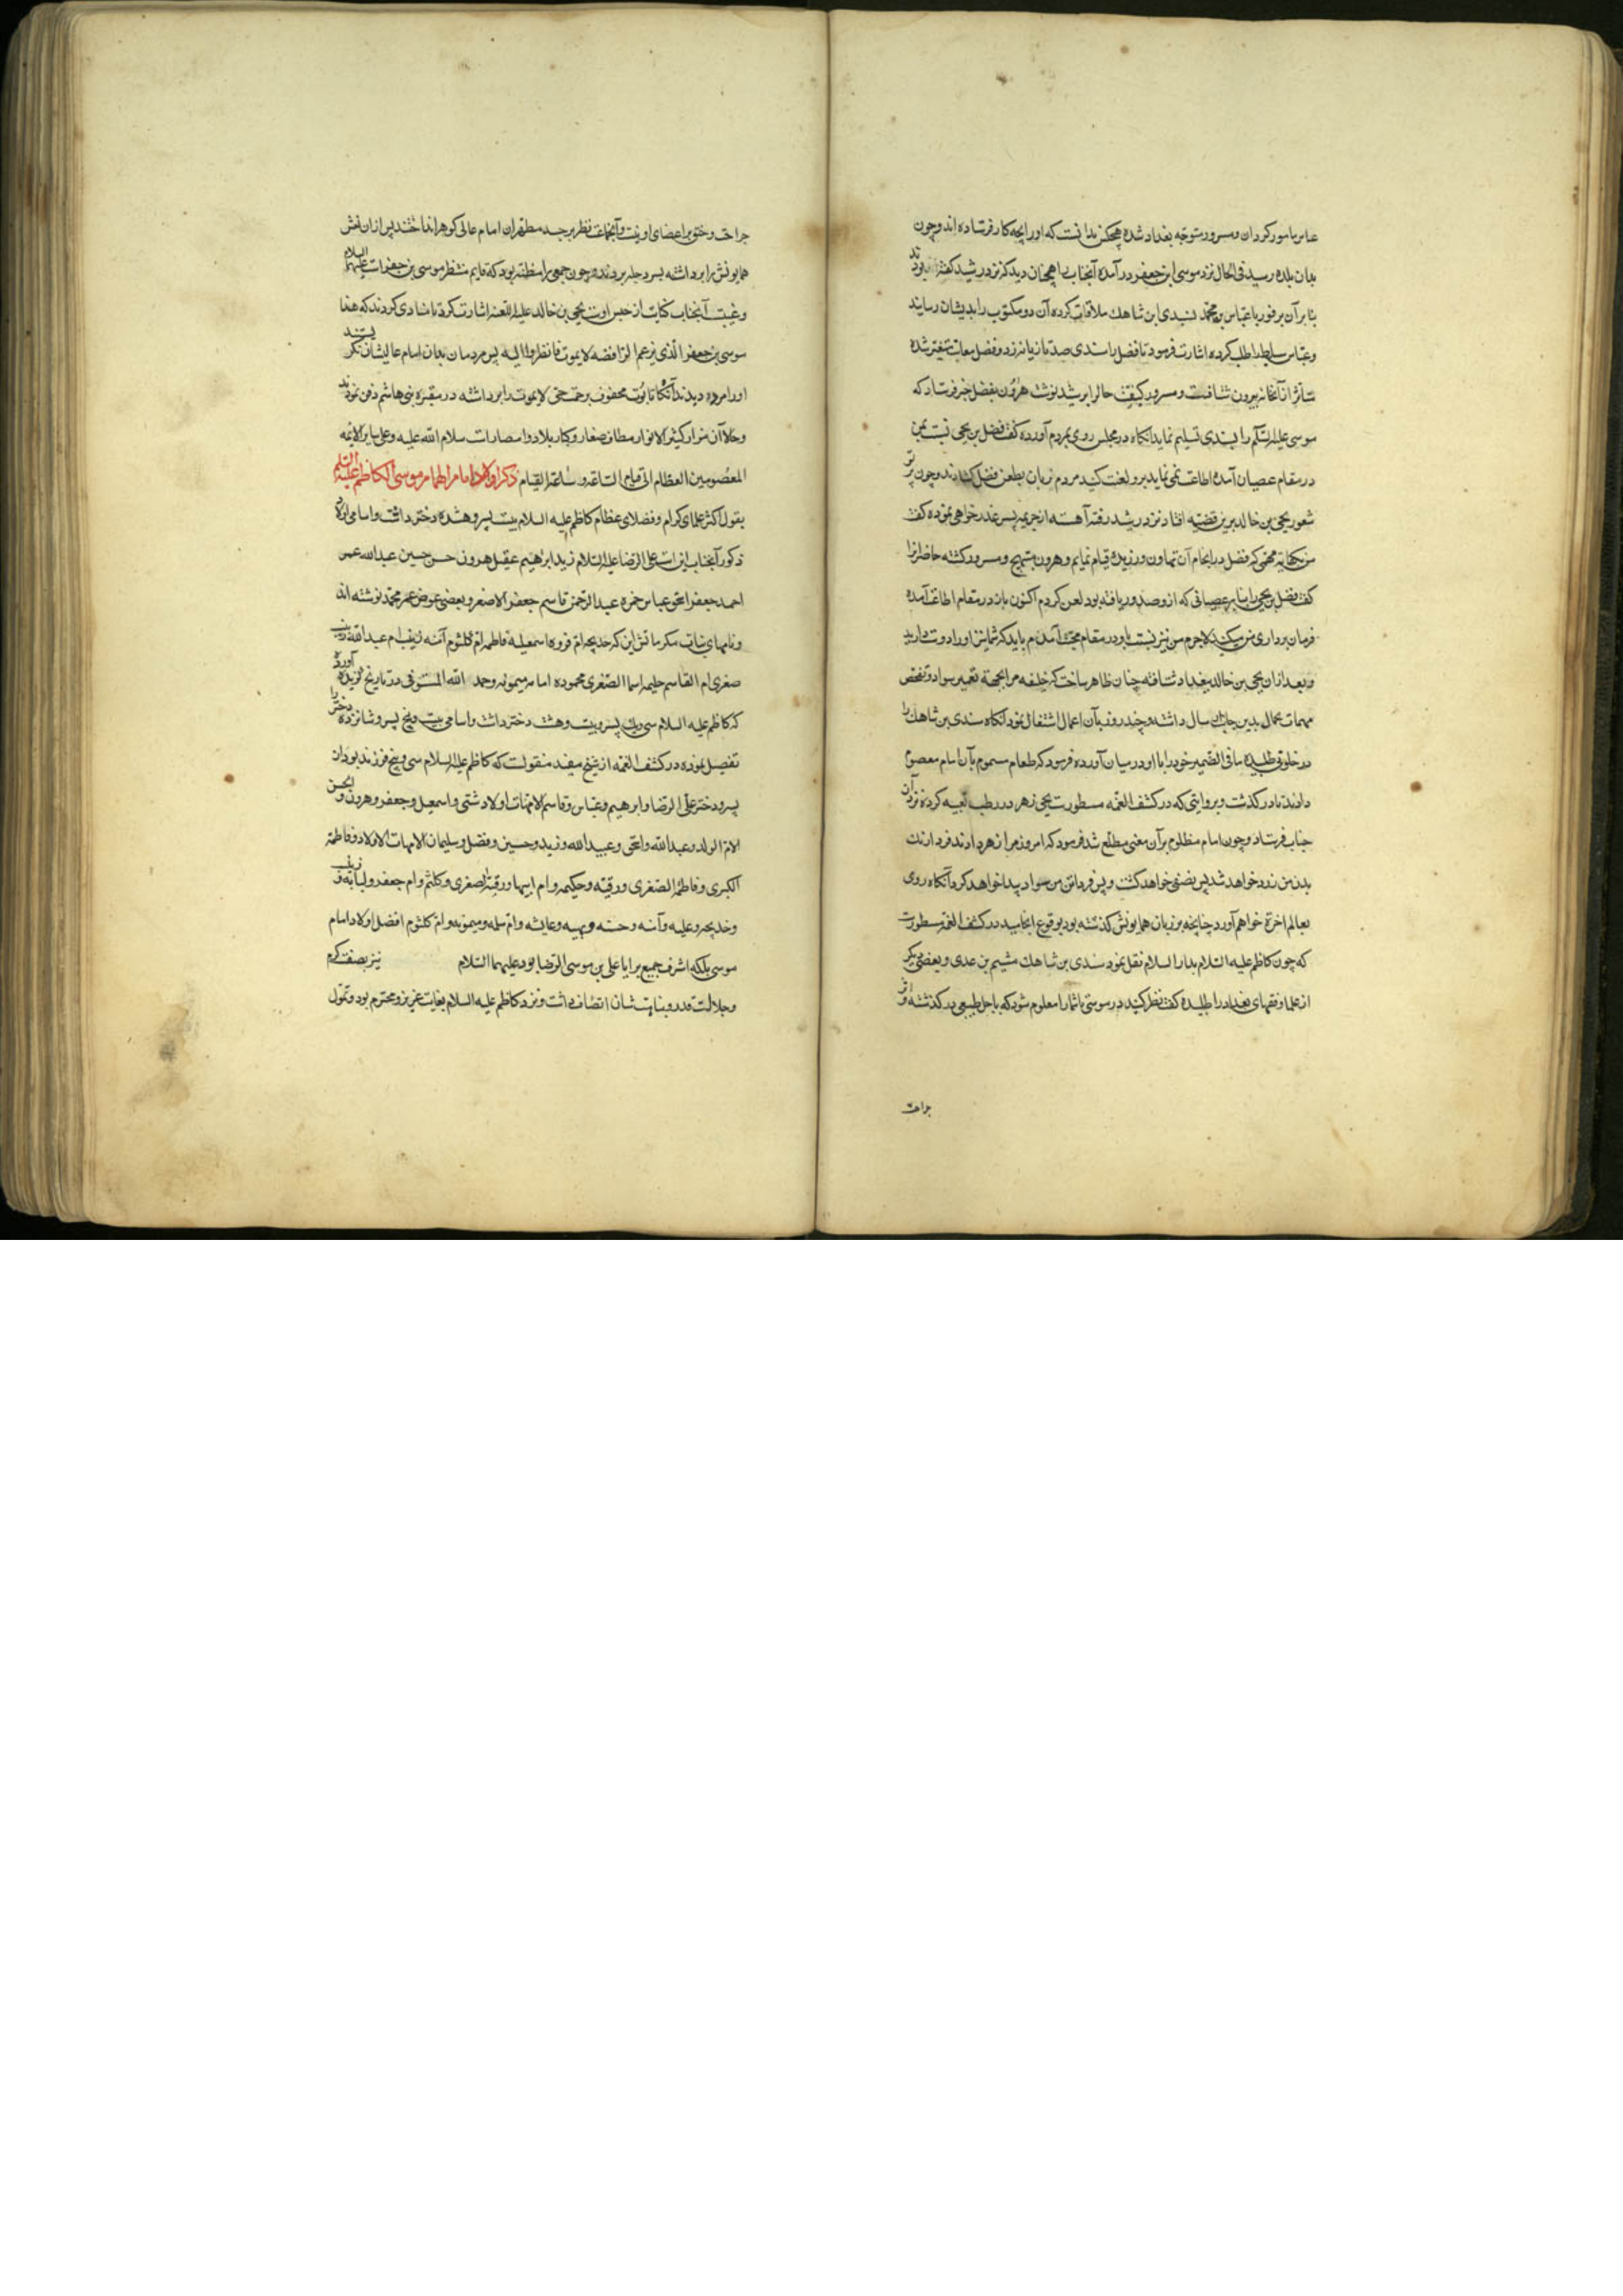 عباس مامور کردان و مسرور متوجه بغداد شده هیچکس ندانست که او را بچه کار فرستاده اند و چون
بدان بلده رسید فی الحال نزد موسی ابن جعفر در آمده آنجناب را همچنان دید که نزد رشید گفته بودند
بنابر آن بر فور با عباس و محمد لسندی ابن شاهك ملاقات کرده آن دو مکتوب را بدیشان رسانید
و عباس سیاط طلب کرده اشارت فرمود تا فضل را سندی صد تازیانه زد و فضل بغایت متغیر شده
متأثر از آنخانه بیرون شتافت و مسرور کیفیت حال را برشید نوشت هرون بفضل خبر فرستاد که
موسی علیه السلم را بسندی تسلیم نماید آنکاه در مجلس روی بمردم آورده گفت فضل بن یحیی نسبت بمن
در مقام عصیان آمده اطاعت نمی نماید برو لعنت کنید مردم زبان بطعن فضل کشادند و چون پرتو
شعور یحیی بن خالد برین قضیه افتاد نزد رشید رفته آهسته از جریمه پسر عذرخواهی نموده گفت
من بکفایت مهمی که فضل در انجام آن تهاون ورزیده قیام نمایم و هرون مبتهج و مسرور کشته حاضرانرا
گفت فضل بن یحیی را بنابر عصیانی که ازو صدور یافته بود لعن کردم اکنون باز در مقام اطاعت آمده
فرمان برداری من میکند لاجرم من نیز نسبت باو در مقام محبت آمدم باید که شما نیز او را دوست دارید
و بعد از ان یحیی بن خالد ببغداد شتافته چنان ظاهر ساخت که خلیفه مرا بجهة تعمیر سواد و تفحص
مهمات عمال بدین جانب ارسال داشته و چند روز بآن اعمال اشتغال نمود آنکاه سندی بن شاهك را
در خلوتی طلبیده ما فی الضمیر خود را با او در میان آورده فرمود که طعام مسموم بآن امام معصوم
دادند تا در کذشت و بروایتی که در کشف الغمه مسطورست یحیی زهر در رطب تعبیه کرده نزد آن
جناب فرستاد و چون امام مظلوم بر آن معنی مطلع شد فرمود که امروز مرا زهر دادند فردا رنك
بدن من زرد خواهد شد پس نصفی خواهد کشت و پس فردا تن من سواد پیدا خواهد کرد آنکاه روی
بعالم اخرة خواهم آورد چنانچه بر زبان همایونش کذشته بود بوقوع انجامید در کشف الغمه مسطورست
که چون کاظم علیه السلام بدار السلام نقل نمود سندی بن شاهك هشیم بن عدی و بعضی دیکر
از علما و فقهای بغداد را طلبیده گفت نظر کنید در موسی تا شما را معلوم شود که باجل طبیعی در کذشته و اثر
جراحت
جراحت و ختق بر اعضای او نیست و آنجماعت نظر بر جسد مطهر ان امام عالی کوهر انداختند پس از ان نعش
همایونش را برداشته بسر دجله بردند و چون جمعی را مظنه بود که قایم منتظر موسی بن جعفرست علیهما السلام
و غیبت آنجناب کنایت از حبس اوست یحیی بن خالد علیه اللعنه اشارت کرد تا منادی کردند که هذا
موسی بن جعفر الذی یزعم الرافضه لا یموت فانظروا الیه پس مردمان بدان امام عالیشان نکریستند
او را مرده دیدند آنکاه تابوت محفوف برحمت حی لا یموت را برداشته در مقبره بنی هاشم دفن نمودند
و حالا آن مزار کثیر الانوار مطاف صغار و کبار بلاد و امصارست سلام الله علیه و علی سایر الائمه
المعصومین العظام الی قیام الساعة و ساعة القیام ذکر اولاد امام الهمام موسی الکاظم علیه السلم
بقول اکثر علمای کرام و فضلای عظام کاظم علیه السلام بیست پسر و هشده دختر داشت و اسامی اولاد
ذکور آنجناب این است علی الرضا علیه السلام زید ابراهیم عقیل هرون حسن حسین عبدالله عمر
احمد جعفر اسحق عباس حمزه عبدالرحمن قاسم جعفر الاصغر و بعضی عوض عمر محمد نوشته اند
و نامهای بنات مکرماتش این که خدیجه ام فروه اسمعیلیه فاطمه ام کلثوم آمنه زینب ام عبدالله زینب
صغری ام القاسم حلیمه اسما الصغری محموده امامه میمونه و حمد الله المستوفی در تاریخ کزیده آورده
که کاظم علیه السلام سی و یك پسر و بیست و هشت دختر داشت و اسامی بیست و پنج پسر و شانزده دختر را
تفصیل نموده در کشف الغمه از شیخ مفید منقولست که کاظم علیه السلام سی و پنج فرزند بود از ان
پسر و دختر علی الرضا و ابرهیم و عباس و قاسم لامهات اولاد شتی و اسمعیل و جعفر و هرون و الحسن
لام الولد و عبدالله و اسحق و عبیدالله و زید و حسین و فضل و سلیمان لامهات الاولاد و فاطمه
الکبری و فاطمة الصغری و رقیه و حکیمه و ام ابیها و رقیة الصغری و کلثم و ام جعفر و لبابه و زینب
و خدیجه و علیه و آمنه و حسنه و بهیه و عایشه و ام سلمه و میمونه و ام کلثوم افضل اولاد امام
موسی بلکه اشرف جمیع برایا علی بن موسی الرضا بود علیهما السلام نیز بصفت کرم
و جلالت قدر و نباهت شان اتصاف داشت و نزد کاظم علیه السلام بغایت عزیز و محترم بود و تمول